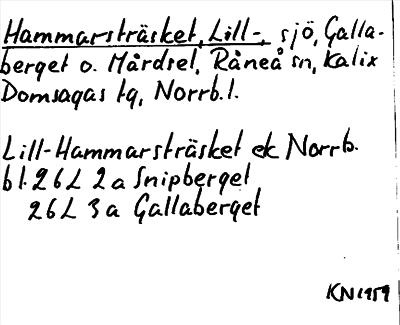 Hammarsträsket, Lill-, sjö, Galla-
berget o. Mårdsel, Råneå sn, Kalix
Domsagas tg, Norrb. l.
Lill-Hammarsträsket ek Norrb.
bl. 26L 2a Snipberget
26L 3a Gallaberget
KN 1959